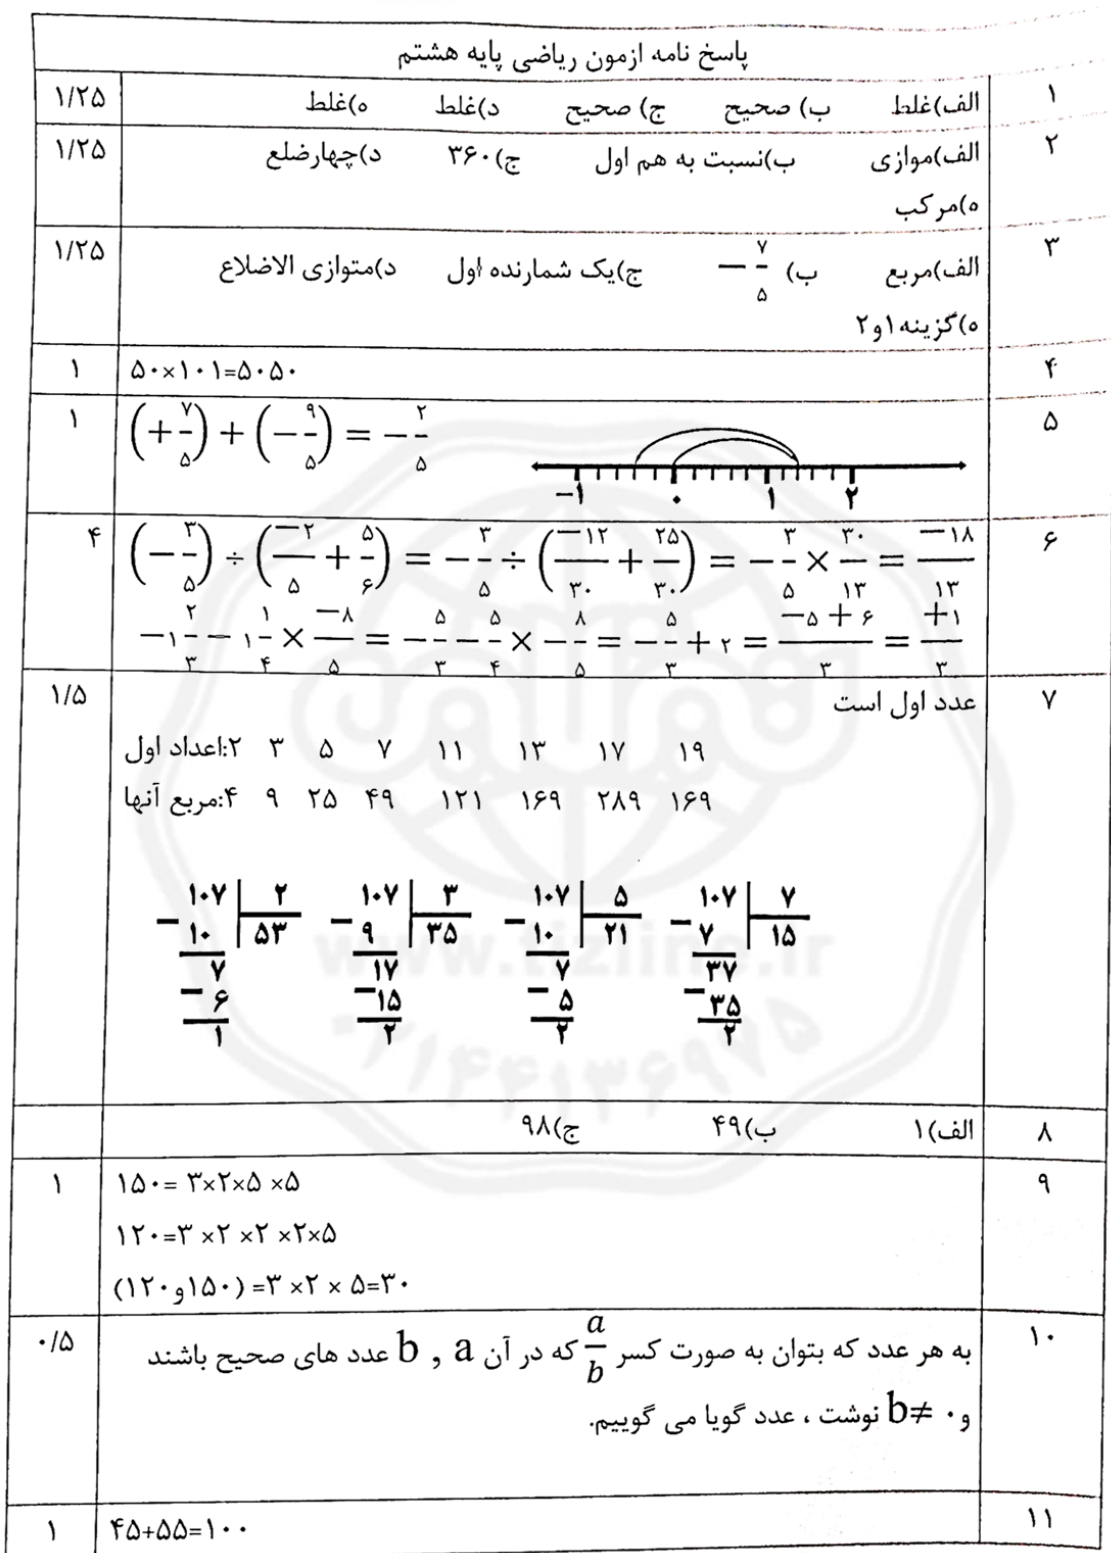 پاسخ نامه ازمون ریاضی پایه هشتم
۱ الف)غلط ب) صحیح ج) صحیح د)غلط ه)غلط ۱/۲۵
۲ الف)موازی ب)نسبت به هم اول ج)۳۶۰ د)چهارضلع ۱/۲۵
ه)مرکب
۳ الف)مربع ب) −۷/۵ ج)یک شمارنده اول د)متوازی الاضلاع ۱/۲۵
ه)گزینه۱و۲
۴ ۵۰×۱۰۱=۵۰۵۰ ۱
۵ (+۷/۵) + (−۹/۵) = −۲/۵ ۱
−۱ ۰ ۱ ۲
۶ (−۳/۵) ÷ (−۲/۵ + ۵/۶) = −۳/۵ ÷ (−۱۲/۳۰ + ۲۵/۳۰) = −۳/۵ × ۳۰/۱۳ = −۱۸/۱۳ ۴
−۱ ۲/۳ − ۱ ۱/۴ × −۸/۵ = −۵/۳ − ۵/۴ × −۸/۵ = −۵/۳ + ۲ = −۵+۶/۳ = +۱/۳
۷ عدد اول است ۱/۵
اعداد اول:۲ ۳ ۵ ۷ ۱۱ ۱۳ ۱۷ ۱۹
مربع آنها:۴ ۹ ۲۵ ۴۹ ۱۲۱ ۱۶۹ ۲۸۹ ۱۶۹
۱۰۷ ۲ ۱۰۷ ۳ ۱۰۷ ۵ ۱۰۷ ۷
−۱۰ ۵۳ −۹ ۳۵ −۱۰ ۲۱ −۷ ۱۵
۷ ۱۷ ۷ ۳۷
−۶ −۱۵ −۵ −۳۵
۱ ۲ ۲ ۲
www.tizline.ir
۰۲۱۴۴۱۳۶۹۷۵
۸ الف)۱ ب)۴۹ ج)۹۸
۹ ۱۵۰= ۳×۲×۵ ×۵ ۱
۱۲۰=۳ ×۲ ×۲ ×۲×۵
(۱۵۰و۱۲۰) =۳ ×۲ × ۵=۳۰
۱۰ به هر عدد که بتوان به صورت کسر a/b که در آن a , b عدد های صحیح باشند ۰/۵
و b≠ ۰ نوشت ، عدد گویا می گوییم.
۱۱ ۴۵+۵۵=۱۰۰ ۱